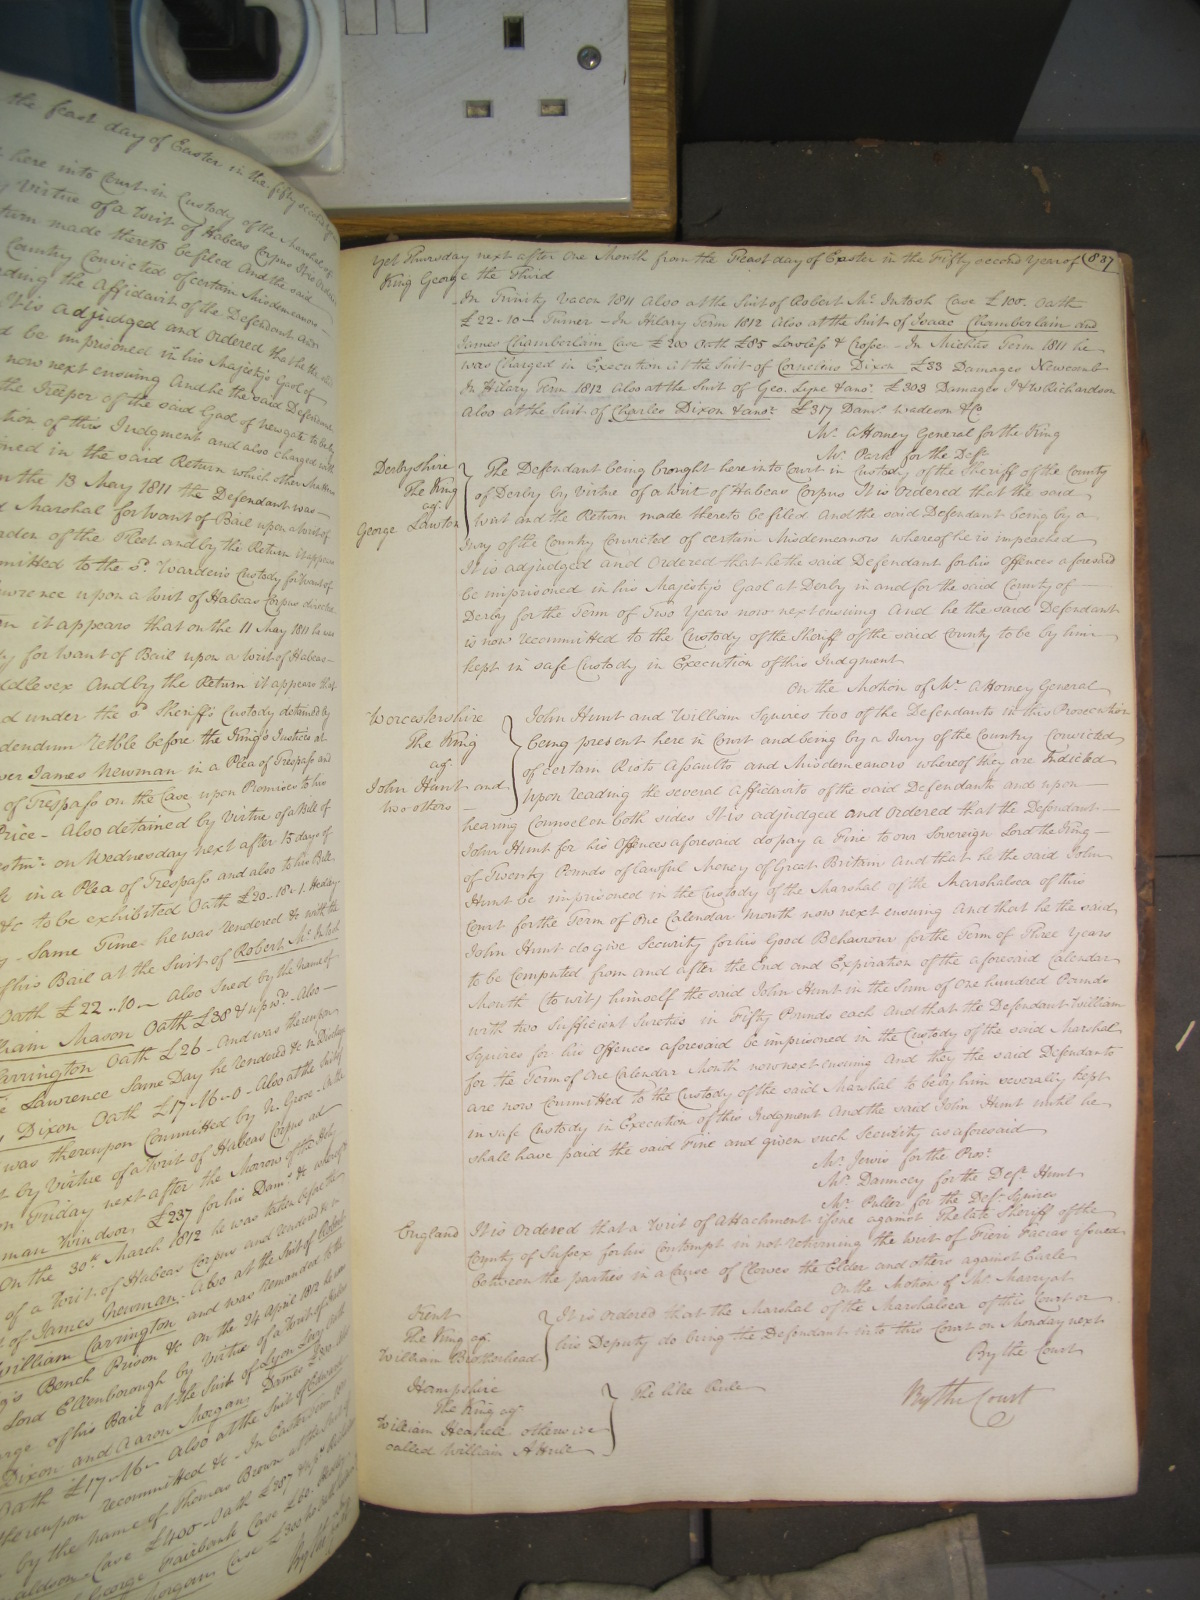 the feast day of Easter in the fifty second year
here into Court in Custody of the Marshal
by Virtue of a Writ of Habeas Corpus It is Ordered
turn made thereto be filed And the said
Country Convicted of certain Misdemeanors
the Affidavit of the Defendant
It is adjudged and Ordered that he the said
be imprisoned in his Majesty's Gaol of
now next ensuing And he the said Defendant
the Keeper of the said Gaol of Newgate to be by
tion of this Judgment and also charged with
oned in the said Return which other Matters
n the 13 May 1811 the Defendant was
Marshal for Want of Bail upon a writ of
arden of the Fleet and by the Return it appears
mitted to the sd. Warden's Custody for Want of
wrence upon a Writ of Habeas Corpus directed
n it appears that on the 11 May 1811 he was
y for Want of Bail upon a Writ of Habeas
ddlesex And by the Return it appears that
d under the sd. Sheriff's Custody detained by
dendum retble before the King's Justice at
James Newman in a Plea of Trespass and
of Trespass on the Case upon Promises to his
Price - Also detained by Virtue of a Bill of
on Wednesday next after 15 days of
in a Plea of Trespass and also to his Bill
&c to be exhibited Oath £20..18..1. Healey
Same Time he was rendered &c with the
of his Bail at the Suit of Robert Mc. Intosh
Oath £22..10.- Also Sued by the name of
William Mason Oath £38 & upwds. Also
Carrington Oath £26 - And was thereupon
Lawrence Same Day he rendered &c in Discharge
Dixon Oath £17-16-0 - Also at the Suit of
was thereupon Committed by N. Grose
by virtue of a Writ of Habeas Corpus ad
on Friday next after the Morrow of the
man Windsor £237 for his Dams. & whereof
On the 30th March 1812 he was taken before the
of a Writ of Habeas Corpus and rendered
of James Newman. Also at the Suit of Robert
William Carrington and was remanded to the
's Bench Prison &c On the 24 April 1812 he was
Lord Ellenborough by Virtue of a Writ of Habeas
arge of his Bail at the Suit of Lyon Levy Oath
Dixon and Aaron Morgan Damas £300
Oath £17-16- Also at the Suit of Edward
thereupon recommitted &c - In Easter
by the name of Thomas Brown at the Suit of
Case £400 - Oath £287 &
George Fairbank Case £60
Case £300
Yet Thursday next after One Month from the Feast day of Easter in the Fifty second Year of 837
King George the Third
In Trinity Vacon 1811 Also at the Suit of Robert Mc. Intosh Case £100. Oath
£22-10- Turner - In Hilary Term 1812 Also at the Suit of Isaac Chamberlain and
James Chamberlain Case £200 Oath £85 Lowless & Crosse - In Michas Term 1811 he
was Charged in Execution at the Suit of Cornelius Dixon £33 Damages Newcomb
In Hilary Term 1812 Also at the Suit of Geo. Lyne & anor. £303 Damages J & W Richardson
Also at the Suit of Charles Dixon & anor. £317 Dams. Wadeson & Co
Mr. Attorney General for the King
Mr. Park for the Deft.
Derbyshire
The King
agt.
George Lawton
The Defendant being brought here into Court in Custody of the Sheriff of the County
of Derby by Virtue of a Writ of Habeas Corpus It is Ordered that the said
Writ and the Return made thereto be filed And the said Defendant being by a
Jury of the Country Convicted of certain Misdemeanors whereof he is impeached
It is adjudged and Ordered that he the said Defendant for his Offences aforesaid
be imprisoned in his Majesty's Gaol at Derby in and for the said County of
Derby for the Term of Two Years now next ensuing And he the said Defendant
is now recommitted to the Custody of the Sheriff of the said County to be by him
kept in safe Custody in Execution of this Judgment
On the Motion of Mr. Attorney General
Worcestershire
The King
agt.
John Hunt and
two others
John Hunt and William Squires two of the Defendants in this Prosecution
being present here in Court and being by a Jury of the Country Convicted
of certain Riots Assaults and Misdemeanors whereof they are Indicted
Upon reading the several Affidavits of the said Defendants and upon
hearing Counsel on both sides It is adjudged and Ordered that the Defendant
John Hunt for his Offences aforesaid do pay a Fine to our Sovereign Lord the King
of Twenty Pounds of lawful Money of Great Britain And that he the said John
Hunt be imprisoned in the Custody of the Marshal of the Marshalsea of this
Court for the Term of One Calendar Month now next ensuing And that he the said
John Hunt do give Security for his Good Behaviour for the Term of Three Years
to be Computed from and after the End and Expiration of the aforesaid Calendar
Month (to wit) himself the said John Hunt in the Sum of One hundred Pounds
with two Sufficient Sureties in Fifty Pounds each And that the Defendant William
Squires for his Offences aforesaid be imprisoned in the Custody of the said Marshal
for the Term of One Calendar Month now next ensuing And they the said Defendants
are now Committed to the Custody of the said Marshal to be by him severally kept
in safe Custody in Execution of this Judgment And the said John Hunt until he
shall have paid the said Fine and given such Security as aforesaid
Mr. Jervis for the Prosr.
Mr. Dauncey for the Deft. Hunt
Mr. Puller for the Deft. Squires
England
It is Ordered that a Writ of Attachment issue against The late Sheriff of the
County of Sussex for his Contempt in not returning the Writ of Fieri Facias issued
between the parties in a Cause of Clowes the Elder and others against Earle
On the Motion of Mr. Marryat
Kent
The King agt.
William Brotherhead
It is Ordered that the Marshal of the Marshalsea of this Court or
his Deputy do bring the Defendant into this Court on Monday next
By the Court
Hampshire
The King agt.
William otherwise
called William
The like Rule
By the Court